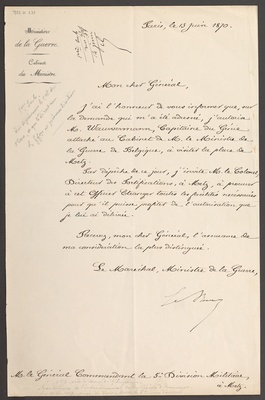 Ministère
de la Guerre.
Cabinet
du Ministre.
Paris, le 13 juin 1870.
Mon cher Général,
J'ai l'honneur de vous informer que, sur
la demande qui m'a été adressée, j'autorise
M. Wauwermans, Capitaine du Génie
attaché au Cabinet de M. le Ministre de
la Guerre de Belgique, à visiter la place de
Metz.
Par dépêche de ce jour, j'invite M. le Colonel
Directeur des Fortifications, à Metz, à procurer
à cet Officier Etranger toutes les facilités nécessaires
pour qu'il puisse profiter de l'autorisation que
je lui ai délivrée.
Recevez, mon cher Général, l'assurance de
ma considération la plus distinguée.
Le Maréchal, Ministre de la Guerre,
M. le Général Commandant la 5e Division Militaire,
à Metz.